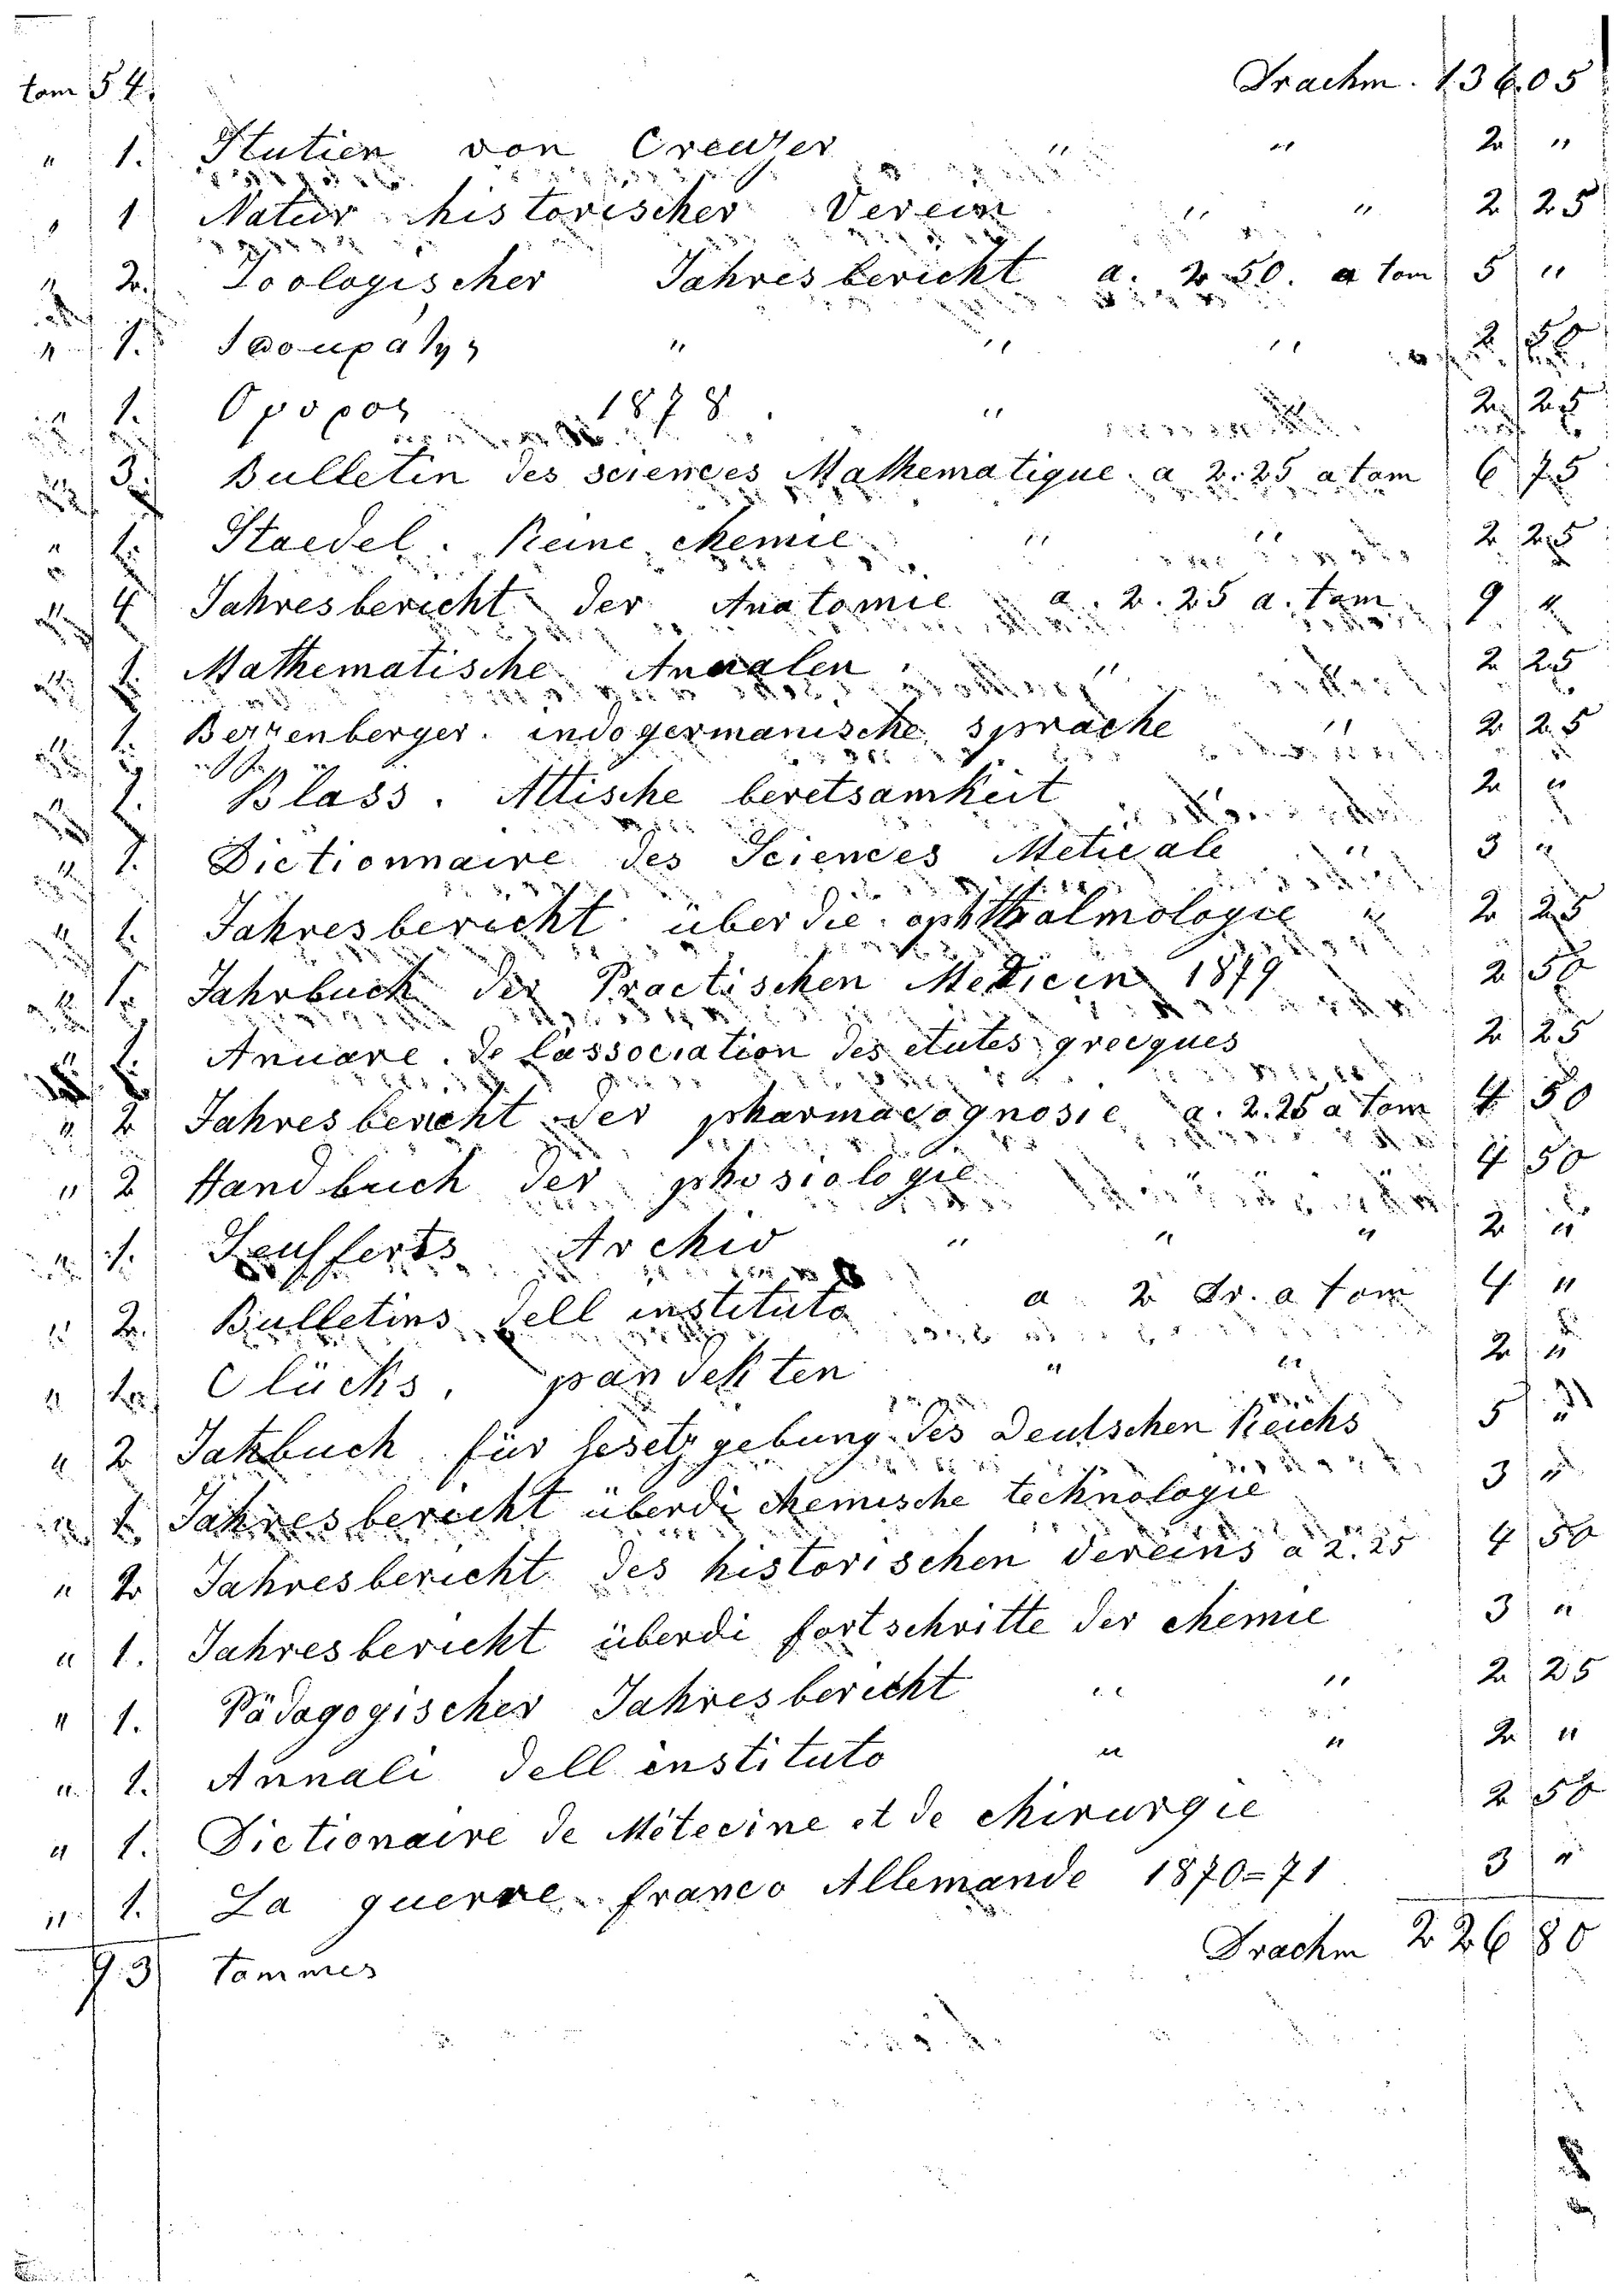 tom 54. Drachm. 136.05
" 1. Stutien von Creutzer " " 2 "
" 1 Natur historischer Verein " " 2 25
" 2. Zoologischer Jahresbericht a. 2.50. a tom 5 "
" 1. " " " 2 50
" 1. Ορορος 1878. " 2 25
" 3. Bulletin des sciences Mathematique. a 2.25 a tom 6 75
" 1. Staedel. Reine chemie " " 2 25
" 4 Jahresbericht der Anatomie a. 2.25 a. tom 9 "
" 1. Mathematische Annalen " 2 25
" 1. Berzenberger. indogermanische sprache " 2 25
" 1. Blass. Attische beretsamkeit 2 "
" 1. Dictionnaire des Sciences Meticale " 3 "
" 1. Jahresbericht über die ophthalmologie " 2 25
" 1. Jahrbuch der Practischen Medicin 1879 2 50
" 1. Anuare. de l'association des etutes grecques 2 25
" 2 Jahresbericht der pharmacognosie a. 2.25 a tom 4 50
" 2 Handbuch der phosiologie 4 50
" 1. Seufferts Archiv " " " 2 "
" 2. Bulletins dell instituto a 2 Dr. a tom 4 "
" 1. Clücks. pandekten " " 2 "
" 2 Jahbuch für Gesetzgebung des Deutschen Reichs 5 "
" 1. Jahresbericht überdi chemische technologie 3 "
" 2 Jahresbericht des historischen Vereins a 2.25 4 50
" 1. Jahresbericht überdi fortschritte der chemie 3 "
" 1. Pädagogischer Jahresbericht " " 2 25
" 1. Annali dell instituto " " 2 "
" 1. Dictionaire de Métecine et de chirurgie 2 50
" 1. La guerre franco Allemande 1870=71 3 "
93 tommes Drachm 226 80